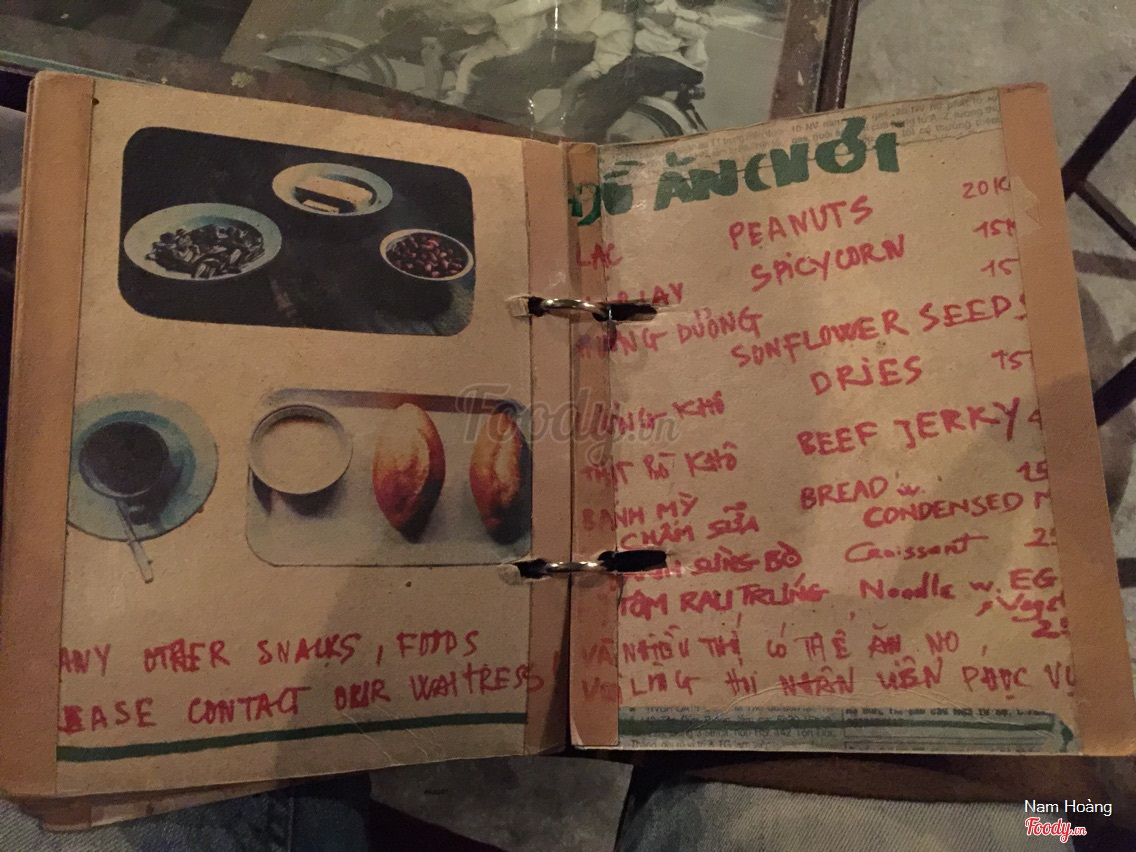 ANY OTHER SNACKS, FOODS
EASE CONTACT OUR WAITRESS
ĐỒ ĂN CHƠI
LẠC PEANUTS 20K
CAY SPICYCORN 15K
HƯỚNG DƯỜNG SONFLOWER SEEDS 15
KHÔ DRIES 15
THỊT BÒ KHÔ BEEF JERKY 4
BANH MỲ BREAD w. 15
CHẤM SỮA CONDENSED M
SỪNG BÒ Croissant 2
TÔM RAU, TRỨNG Noodle w. EG
, Vege
2
VÀ NHIỀU THỨ CÓ THỂ ĂN NO,
LÒNG HỎI NHÂN VIÊN PHỤC VỤ
Foody.vn
Nam Hoàng
Foody.vn